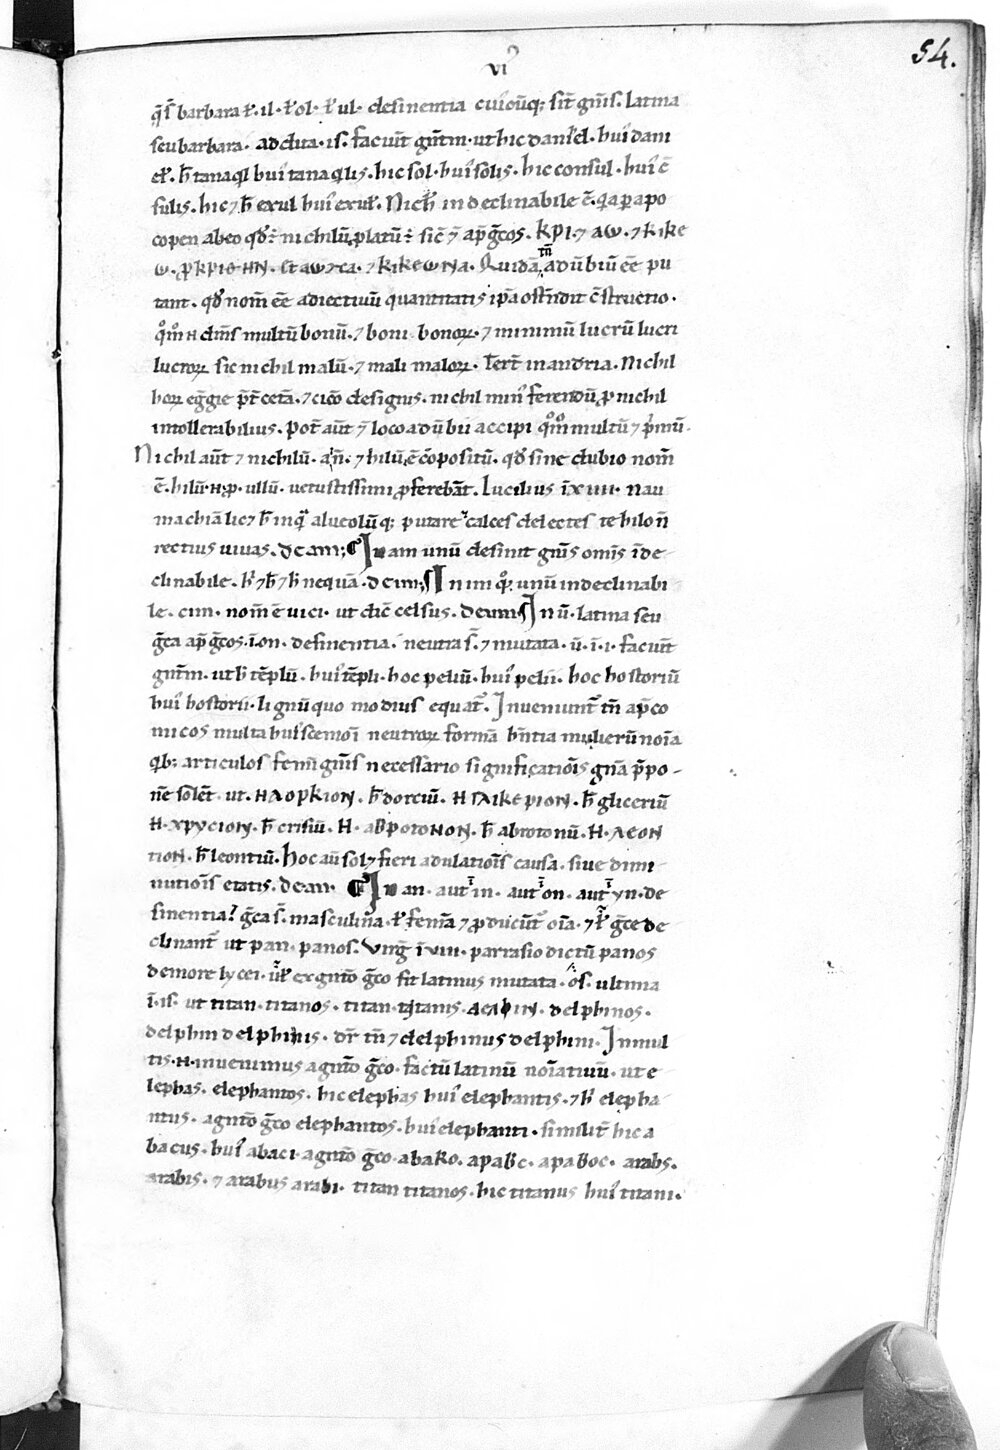 54.
VI
q̄s̄ barbara ł. il. ł ol. ł ul. desinentia cuı᾽cūq; sīt gn̄is. Latina
seu barbara. addita. is. faciūt gn̄tm. ut hic daniel. hui᾽ dani
el᷒. h̄ tanaql hui᾽ tanaqlis. hic sol. hui᾽ solis. hic consul. hui᾽ c̄
sulis. hic ⁊ h̄ exul hui᾽ exul᷒. Nich̄ indeclinabile ē. q̄a ꝑ apo
copen abeo qd̄ ē nichilū platū ē sic ⁊ ap̄ ḡcos. KPI. ⁊ aω. ⁊ KIKE
putant. qd̄ nom̄ ēe adiectiuū quantitatis ip̄a ostn̄dit c̄structio.
q͞m dm̄s multū bonū. ⁊ boni bonoꝝ. ⁊ minimū lucrū lucri
lucroꝝ sic nichil malū. ⁊ mali maloꝝ. Ter̄t in andria. Nichil
hoꝝ eḡgie p̄t cetā. ⁊ cic̄o de signis. nichil min᾽ ferendū ꝓ nichil
intollerabilius. Pot̄ aūt ⁊ loco aduˉbii accipi q͞m multū ⁊ p̄mū.
Nichil aūt ⁊ nichilū. a n̄. ⁊ hilū ē c̄opositū. qd̄ sine dubio nom̄
ē. hilū. ꝓ. ullū. uetustissimi ꝓferebāt. Lucilius ī xiiii. nau
machiā lic; h̄ inq̄ alueolūq; putare ⁊ calces delectes te hilo n̄
rectius uiuas. De am; In am unū desinit gn̄is omīs īde
clinabile. h̄ ⁊ h̄ ⁊ h̄ nequā. De im; In im qq᷒ unū indeclinabi
le. cim. nom̄ ē uici. ut dic̄ celsus. De um; In ū. latina seu
ḡca ap̄ ḡcos. ī. on. desinentia. neutra s̄. ⁊ mutata. ū. ī. i. faciūt
gn̄tm. ut h̄ tēplū. hui᾽ tēpli. hoc peliū. hui᾽ pelii. hoc hostoriū
hui᾽ hostorii. lignū quo modius equat᷒. Inueniunt᷒ tn̄ ap̄ co
micos multa hui᾽scemōi neutroꝝ formā hn̄tia mulierū noīa
qb; articulos femī gn̄is necessario significatiōis gn̄a p̄po-
n̄e solēt. ut. H ΔOPKION. h̄ dorciū. H ΓΛIKEPION. h̄ gliceriū
H. XPYCION. h̄ crisiū. H. ABPOTONON. h̄ abrotonū. H. ΛEON
TION. h̄ leontiū. Hoc aū sol; fieri adulatiōis causa. siue dimi-
nutiōis etatis. De an. In an. aut in. aut on. aut yn. de
sinentia ḡca s̄. masculina. ł fem̄a ⁊ ꝓducūt᷒ oīa. ⁊ ł ḡce de
clinant᷒ ut pan. panos. Virḡ ī viii. parrasio dictū panos
de more lycei. ł ex gn̄to ḡco fit latinus mutata. os. ultima
ī. is. ut titan. titanos. titan. titanis. ΔEΛΦIN. delphinos.
delphin delphinis. dr̄ tn̄ ⁊ delphinus delphini. In mul
tis. inuenimus a gn̄to ḡco. factū latinū noīatiuū. ut e-
lephas. elephantos. hic elephas hui᾽ elephantis. ⁊ h̄ elepha-
ntus. a gn̄to ḡco elephantos. hui᾽ elephanti. similit᷒ hic a
bacus. hui᾽ abaci. a gn̄to ḡco. abako. apaBc. apaBoc. arabs.
arabis. ⁊ arabus arabi. titan titanos. hic titanus hui᾽ titani.